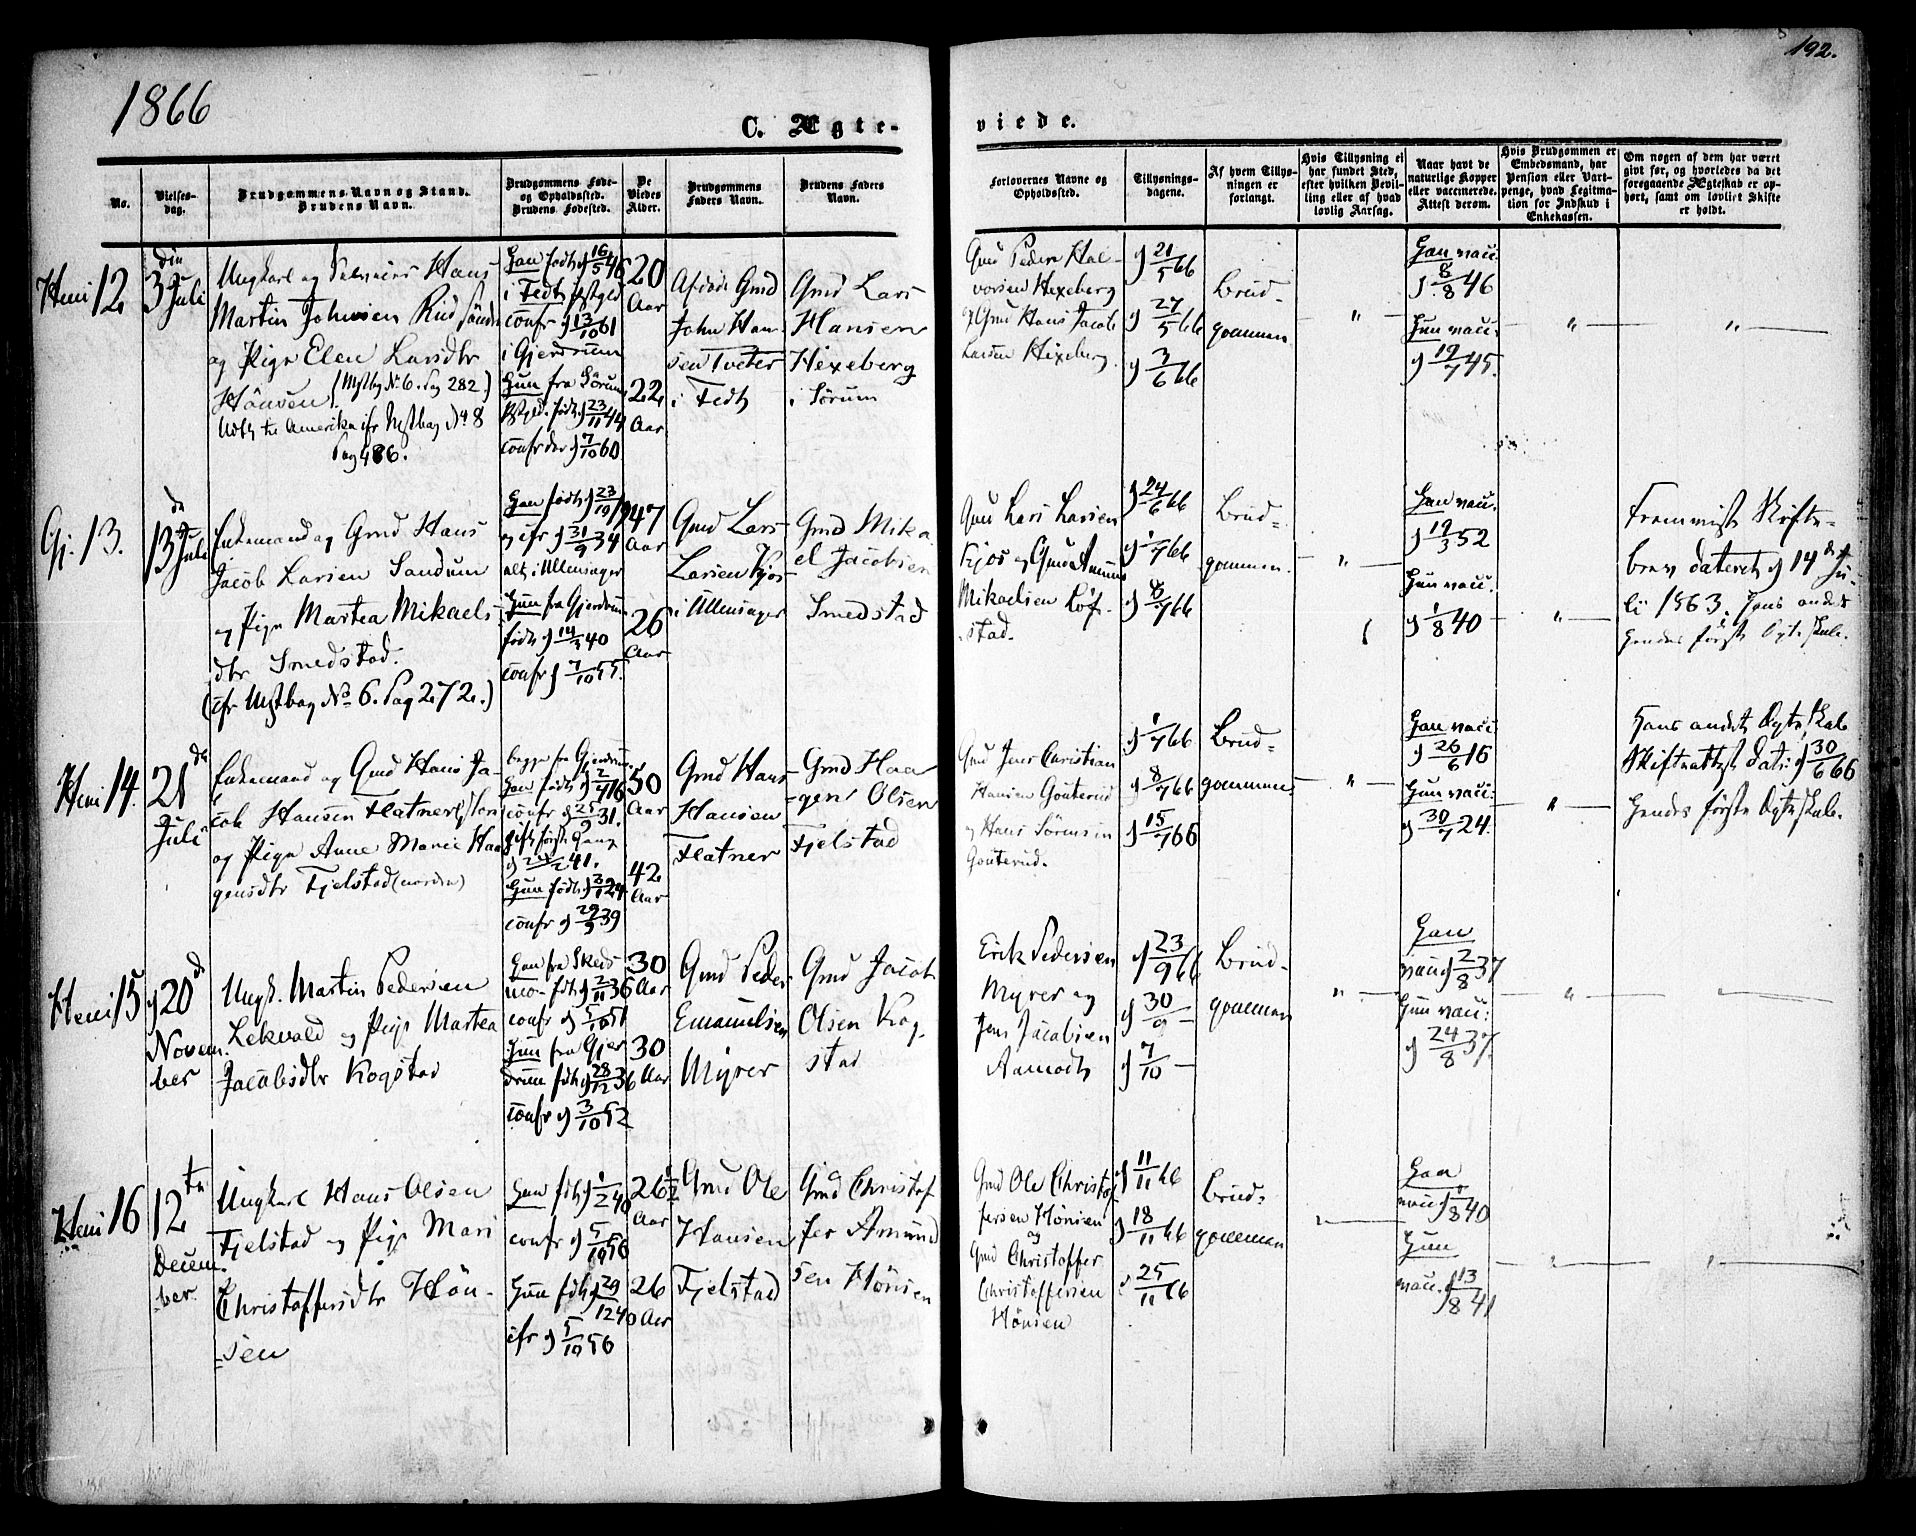 192.
1866
C. Ægte-
viede.
No.
Vielses-
dag.
Brudgommens Navn og Stand.
Brudens Navn.
Brudgommens Føde-
og Opholdssted.
Brudens Fødested.
De
Viedes
Alder.
Brudgommens
Faders Navn.
Brudens Faders
Navn.
Forlovernes Navne og
Opholdssted.
Tillysnings-
dagene.
Af hvem Tillys-
ningen er
forlangt.
Hvis Tillysning ei
har fundet Sted,
efter hvilken Bevil-
ling eller af hvad
lovlig Aarsag.
Naar havt de
naturlige Kopper
eller vaccinerede.
Attest derom.
Hvis Brudgommen er
Embedsmand, har
Pension eller Vart-
penge, hvad Legitima-
tion for Indskud i
Enkekassen.
Om nogen af dem har været
gift før, og hvorledes da det
foregaaende Ægteskab er op-
hørt, samt om lovligt Skifte
er holdt.
Heni 12
den
3 Juli
Ungkarl og Hans
Martin Johnsen Rud søndr
og Pige Elen Larsdtr
Hönsen (Mstbog N. 6. Pag 282.)
Udfl til Amerika cfr Mstbog N. 8
Pag 486.
Han født d 16/5 46
i Fedts Pstgld
confr d 13/10 61
i Gjerdrum
Hun fra Sørum
Pstgld. født d 23/11 44
confr der d 7/10 60
20
Aar
22
Aar
Afdøde Gmd
John Han-
sen Tveter
i Fedts
Gmd Lars
Hansen
Hexeberg
i Sørum
Gmd Peder Hal-
vorsen Hexeberg
og Gmd Hans Jacob
Larsen Hexeberg
d 21/5 66
d 27/5 66
d 3/6 66
Brud-
gommen
"
Han vacc:
d. 8/8 46
Hun vacc:
d 19/7 45.
"
"
Gj. 13.
d
13 Juli
Enkemand og Gmd Hans
Jacob Larsen Sandum
og Pige Martea Mikaels-
dtr Smedstad.
(cfr Mstbog No 6. Pag 272.)
Han født d 23/10 19
og cfr d 31/9 34
alt i Ullensager
Hun fra Gjerdrum
født d 14/3 40
confr d 7/10 55.
47
Aar
26
Aar
Gmd Lars
Larsen Kjos
i Ullensager
Gmd Mika-
el Jacobsen
Smedstad
Gmd Lars Larsen
Kjos og Gmd Amund
Mikaelsen Löf-
stad.
d 24/6 66
d 1/7 66
d 8/7 66
Brud-
gommen.
"
Han vacc.
d 19/3 52
Hun vacc.
d 1/8 40
"
Fremviste Skifte-
brev dateret d 14de Ju-
li 1863. Hans andet
Hendes første Ægteskab.
Heni 14.
21 de
Juli
Enkemand og Gmd Hans Ja-
cob Hansen Flatner
og Pige Anne Marie Haa-
gensdtr Fjelstad (nordre)
begge fra Gjerdrum
Han født d 2/7 16
confr d 25/9 31.
gift første Gang
41.
Hun født d 3/1 24
confr d 29/9 39
50
Aar
42
Aar
Gmd Hans
Hansen
Flatner
Gmd Haa-
gen Olsen
Fjelstad
Gmd Jens Christian
Hansen Gouterud
og Hans Sörensen
Gouterud.
d 1/7 66
d 8/7 66
d 15/7 66
Brud-
gommen.
"
Han vacc
d 26/6 16
Hun vacc:
d 30/7 24.
"
Hans andet Ægteskab
Skifteattest dat: d 30/6 66
Hendes første Ægteskab.
Heni 15
d 20 d
Novem-
ber
Ungk. Martin Pedersen
Lekvald og Pige Martea
Jacobsdtr Kogstad
Han fra Skeds-
mo fdt d 2/11 36
confr d 5/10 51
Hun fra Gjer-
drum fdt d 28/12 36
confr d 3/10 52
30
Aar
30
Aar
Gmd Peder
Emanuelsen
Myrer
Gmd Jacob
Olsen Kog-
stad
Erik Pedersen
Myrer og
Jens Jacobsen
Aamodt
d 23/9 66
d 30/9 -
d 7/10 -
Brud-
gommen
"
Han
vacc d 2/8 37
Hun vacc:
d 24/8 37.
"
Heni 16
12 te
Decem-
ber
Ungkarl Hans Olsen
Fjelstad og Pige Mari
Christoffersdtr Hön-
sen
Han fdt d 1/2 40
confr d 5/10 56
Hun fdt d 29/12 40
cfr d 5/10 56
26 1/2
Aar
26
Aar
Gmd Ole
Hansen
Fjelstad
Gmd Christof-
fer Amund-
sen Hönsen
Gmd Ole Christof-
fersen Hönsen
og
Gmd Christoffer
Christoffersen
Hönsen
d 11/11 66
d 18/11 66
d 25/11 66
Brud-
gommen
"
Han
vacc d 8/8 40
Hun
vacc. d 13/8 41
"
"